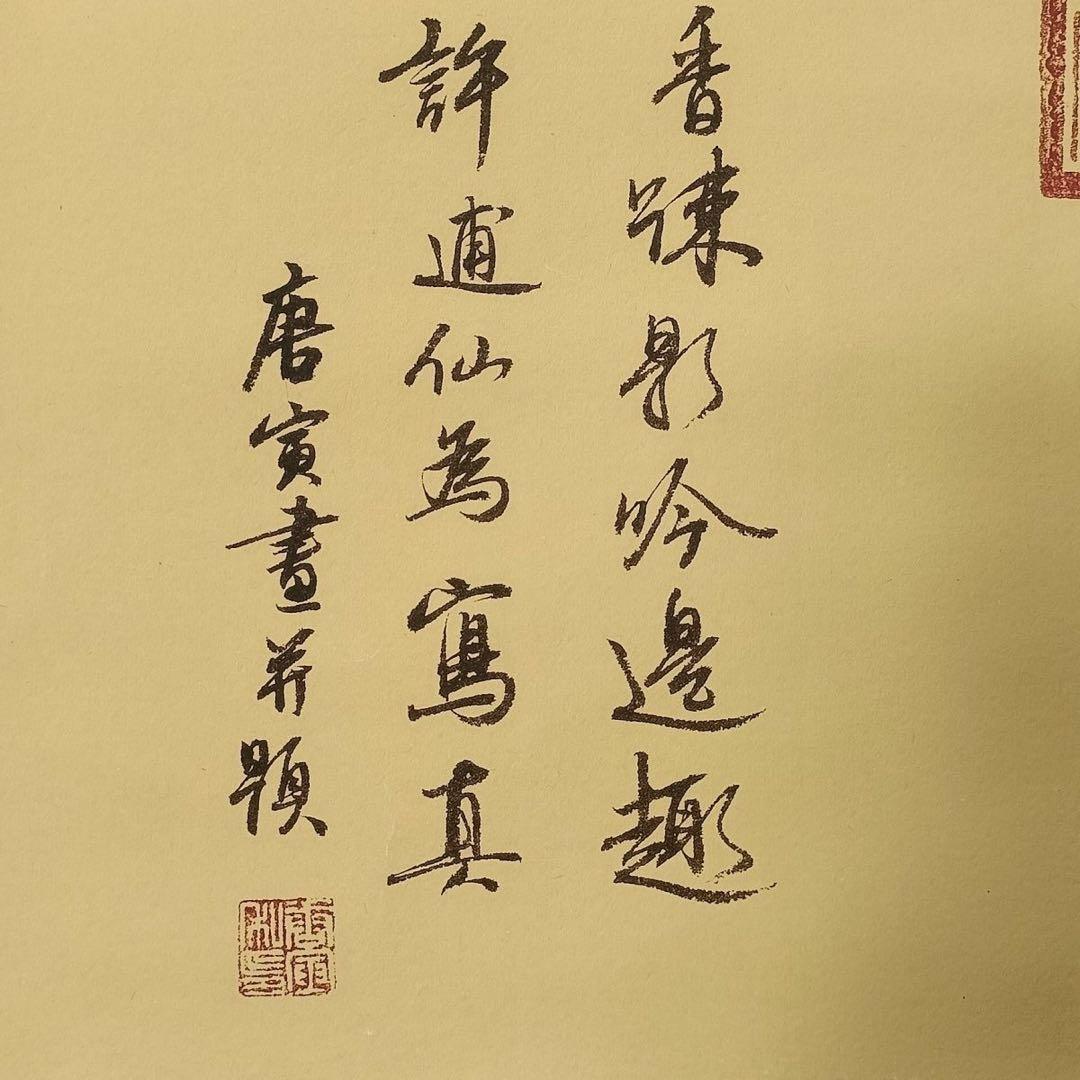 香踈影吟邊趣
許逋仙為寫真
唐寅畫并題